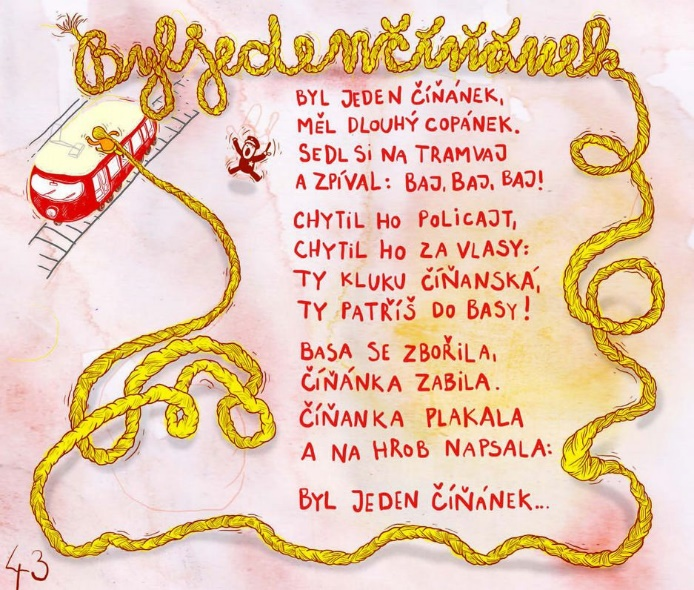 Byl jeden číňánek
BYL JEDEN ČÍŇÁNEK,
MĚL DLOUHÝ COPÁNEK.
SEDL SI NA TRAMVAJ
A ZPÍVAL: BAJ, BAJ, BAJ!
CHYTIL HO POLICAJT,
CHYTIL HO ZA VLASY:
TY KLUKU ČÍŇANSKÁ,
TY PATŘÍŠ DO BASY!
BASA SE ZBOŘILA,
ČÍŇÁNKA ZABILA.
ČÍŇANKA PLAKALA
A NA HROB NAPSALA:
BYL JEDEN ČÍŇÁNEK...
43